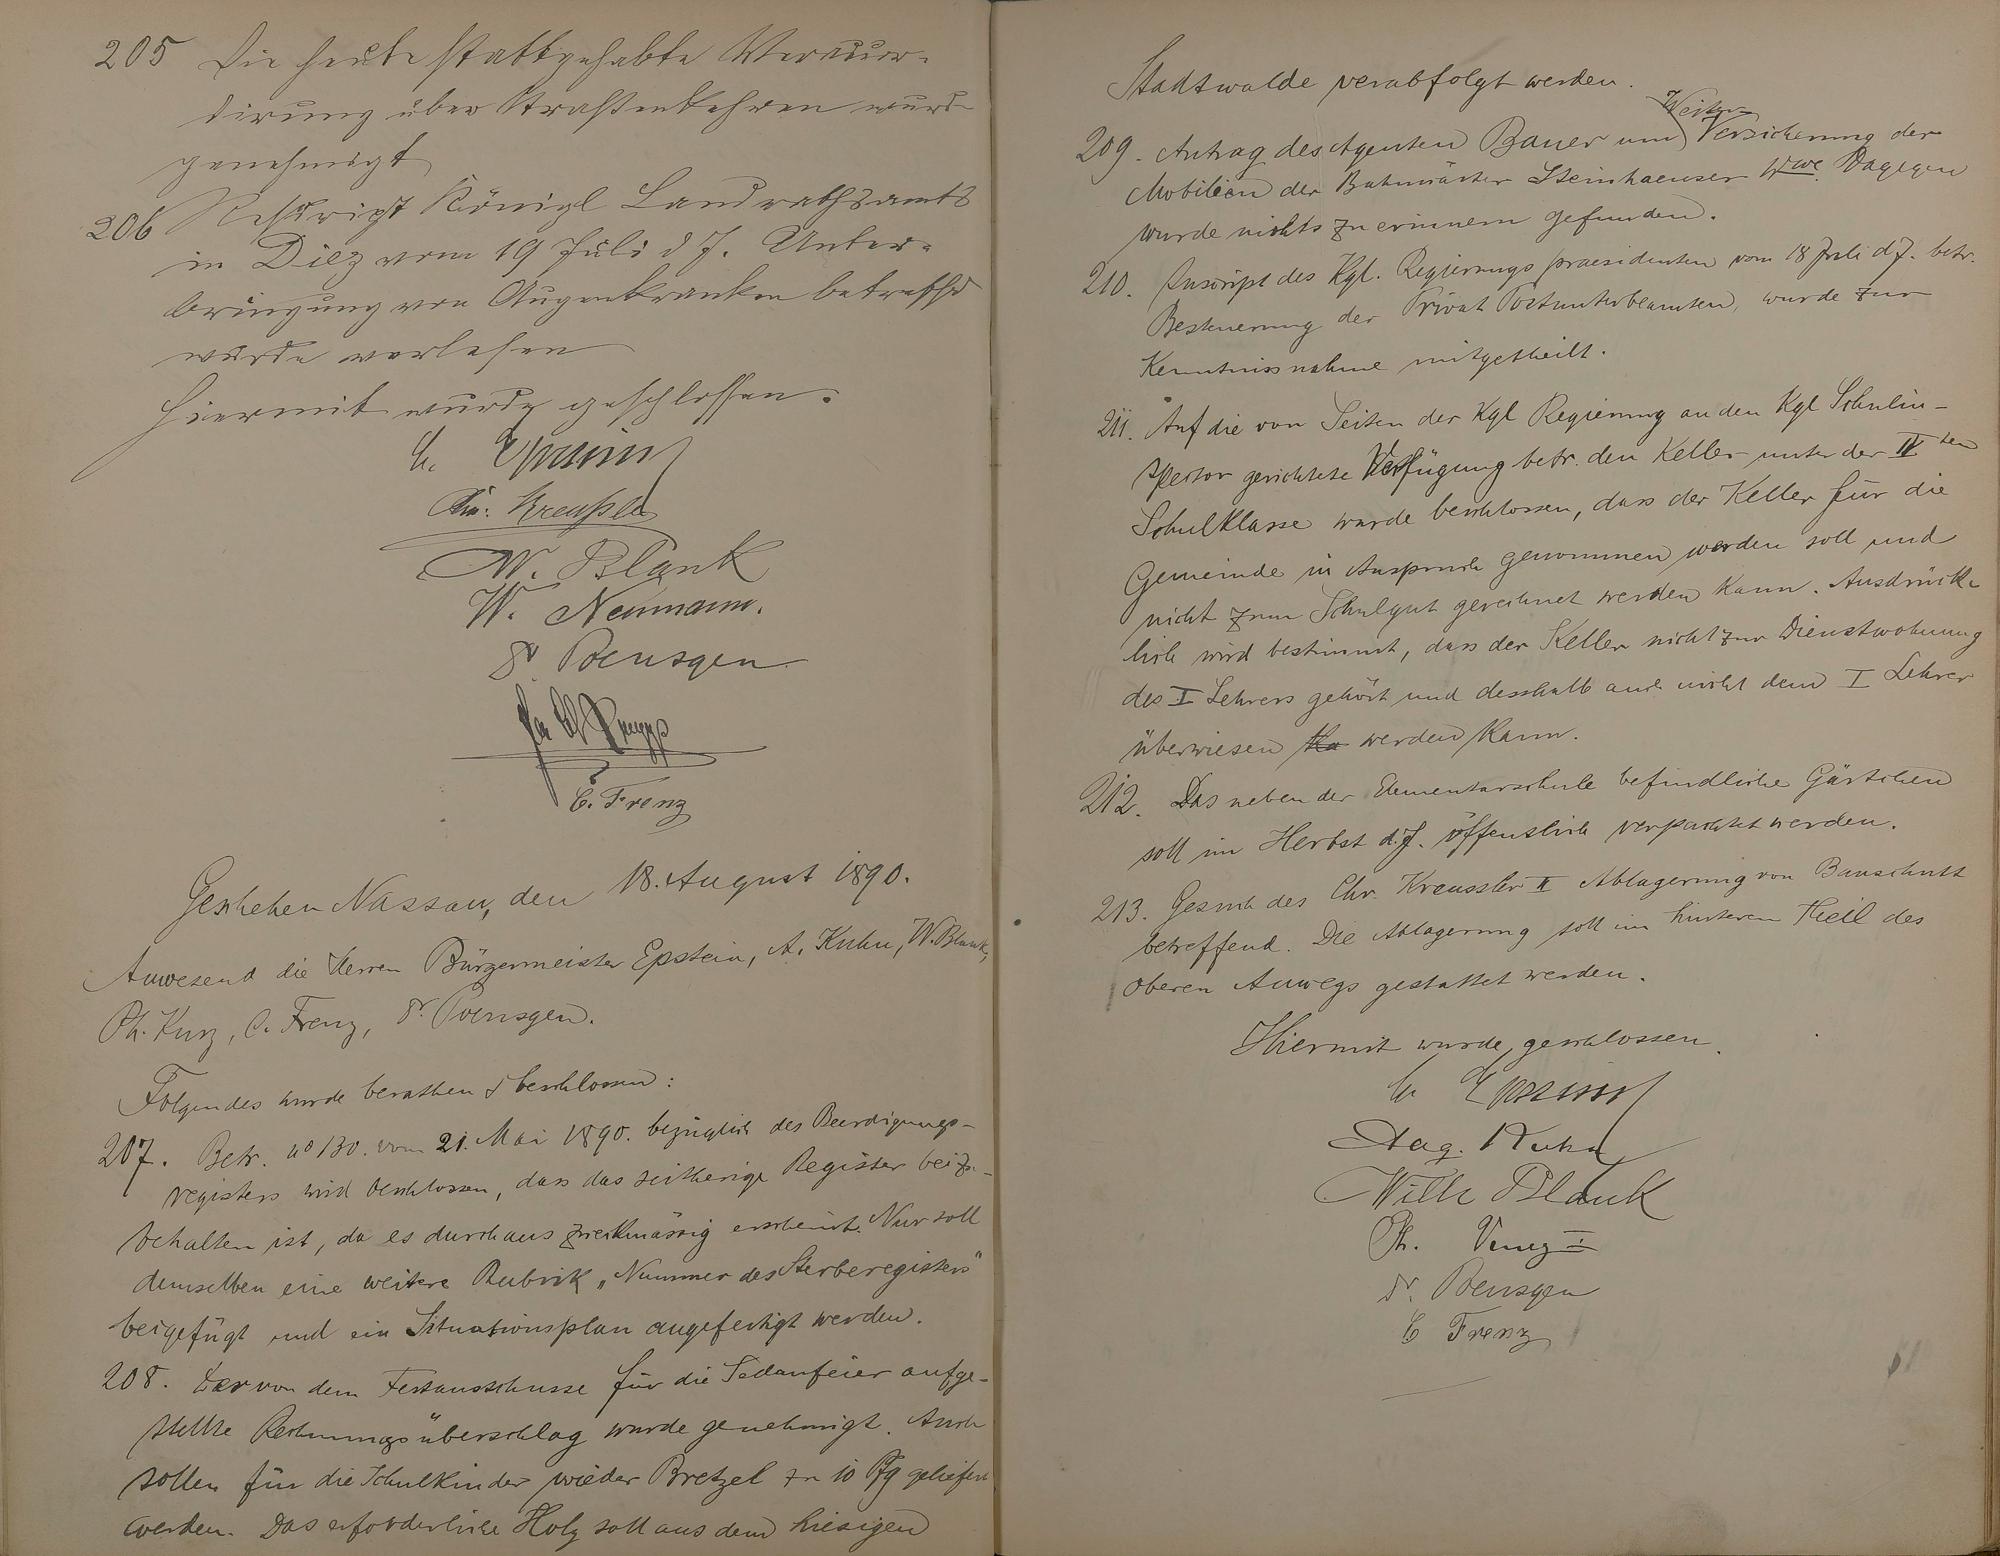 205 Die heute stattgehabte Veraccor-
dirung über Straßenkehren wurde
genehmigt
206 Rescript Königl Landrathsamts
in Diez vom 19 Juli d J. Unter-
bringung von Augenkranken betreffd
wurde verlesen
Hiermit wurde geschlossen.
Chr. Kreußler
W. Blank
W. Neumann.
Dr. Poensgen
C. Frenz
Geschehen Nassau, den 18. August 1890.
Anwesend die Herren Bürgermeister Epstein, A. Kuhn, W. Blank,
Ph. Kurz, C. Frenz, Dr. Poensgen.
Folgendes wurde berathen & beschlossen:
207. Betr. no 130. vom 21. Mai 1890. bezüglich des Beerdigungs-
registers wird beschlossen, dass das seitherige Register beizu-
behalten ist, da es durchaus zweckmässig erscheint. Nur soll
demselben eine weitere Rubrik „Nummer des Sterberegisters"
beigefügt und ein Situationsplan angefertigt werden.
208. Der von dem Festausschusse für die Sedanfeier aufge-
stellte Rechnungsüberschlag wurde genehmigt. Auch
sollen für die Schulkinder wieder Bretzel zu 10 Pfg geliefert
werden. Das erforderliche Holz soll aus dem hiesigen
Stadtwalde verabfolgt werden.
209. Antrag des Agenten Bauer um Weiter Versicherung der
Mobilien der Bahnwärter Steinhaeuser Wwe. Dagegen
wurde nichts zu erinnern gefunden.
210. Inscript des Kgl. Regierungspraesidenten vom 18 Juli d J. betr.
Besteuerung der Privat Postunterbeamten, wurde zur
Kenntnissnahme mitgetheilt.
211. Auf die von Seiten der Kgl Regierung an den Kgl Schulin-
spector gerichtete Verfügung betr. den Keller unter der IV ten
Schulklasse wurde beschlossen, dass der Keller für die
Gemeinde in Anspruch genommen werden soll und
nicht zum Schulgut gerechnet werden kann. Ausdrück-
lich wird bestimmt, dass der Keller nicht zur Dienstwohnung
des I Lehrers gehört und desshalb auch nicht dem I Lehrer
überwiesen werden kann.
212. Das neben der Elementarschule befindliche Gärtchen
soll im Herbst d. J. öffentlich verpachtet werden.
213. Gesuch des Chr. Kreussler II Ablagerung von Bauschutt
betreffend. Die Ablagerung soll im hinteren Theil des
oberen Auwegs gestattet werden.
Hiermit wurde geschlossen.
Aug. Kuhn
Wilh Blank
Dr. Poensgen
C Frenz